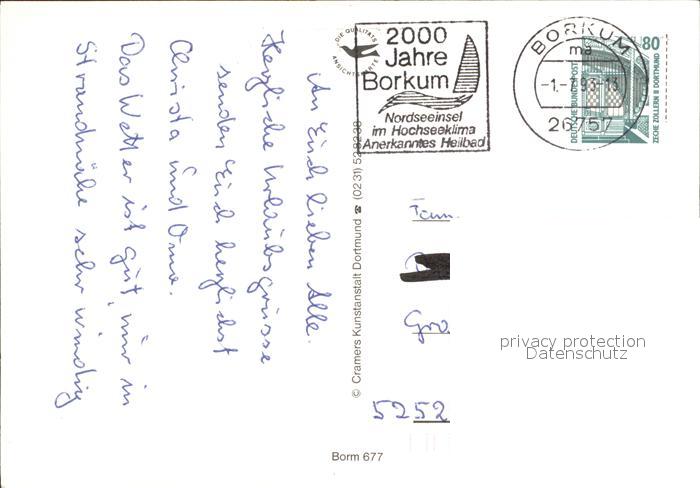 An Euch lieben Alle.
Herzliche Urlaubsgrüsse
senden Euch herzlichst
Christa und Oma.
Das Wetter ist gut, nur in
Strandnähe sehr windig
DIE QUALITÄTS
ANSICHTSKARTE
© Cramers Kunstanstalt Dortmund ☎ (0231) 528238
2000
Jahre
Borkum
Nordseeinsel
im Hochseeklima
Anerkanntes Heilbad
BORKUM
ma
26757
80
DEUTSCHE BUNDESPOST
ZECHE ZOLLERN II DORTMUND
Fam.
Gro
5252
privacy protection
Datenschutz
Borm 677